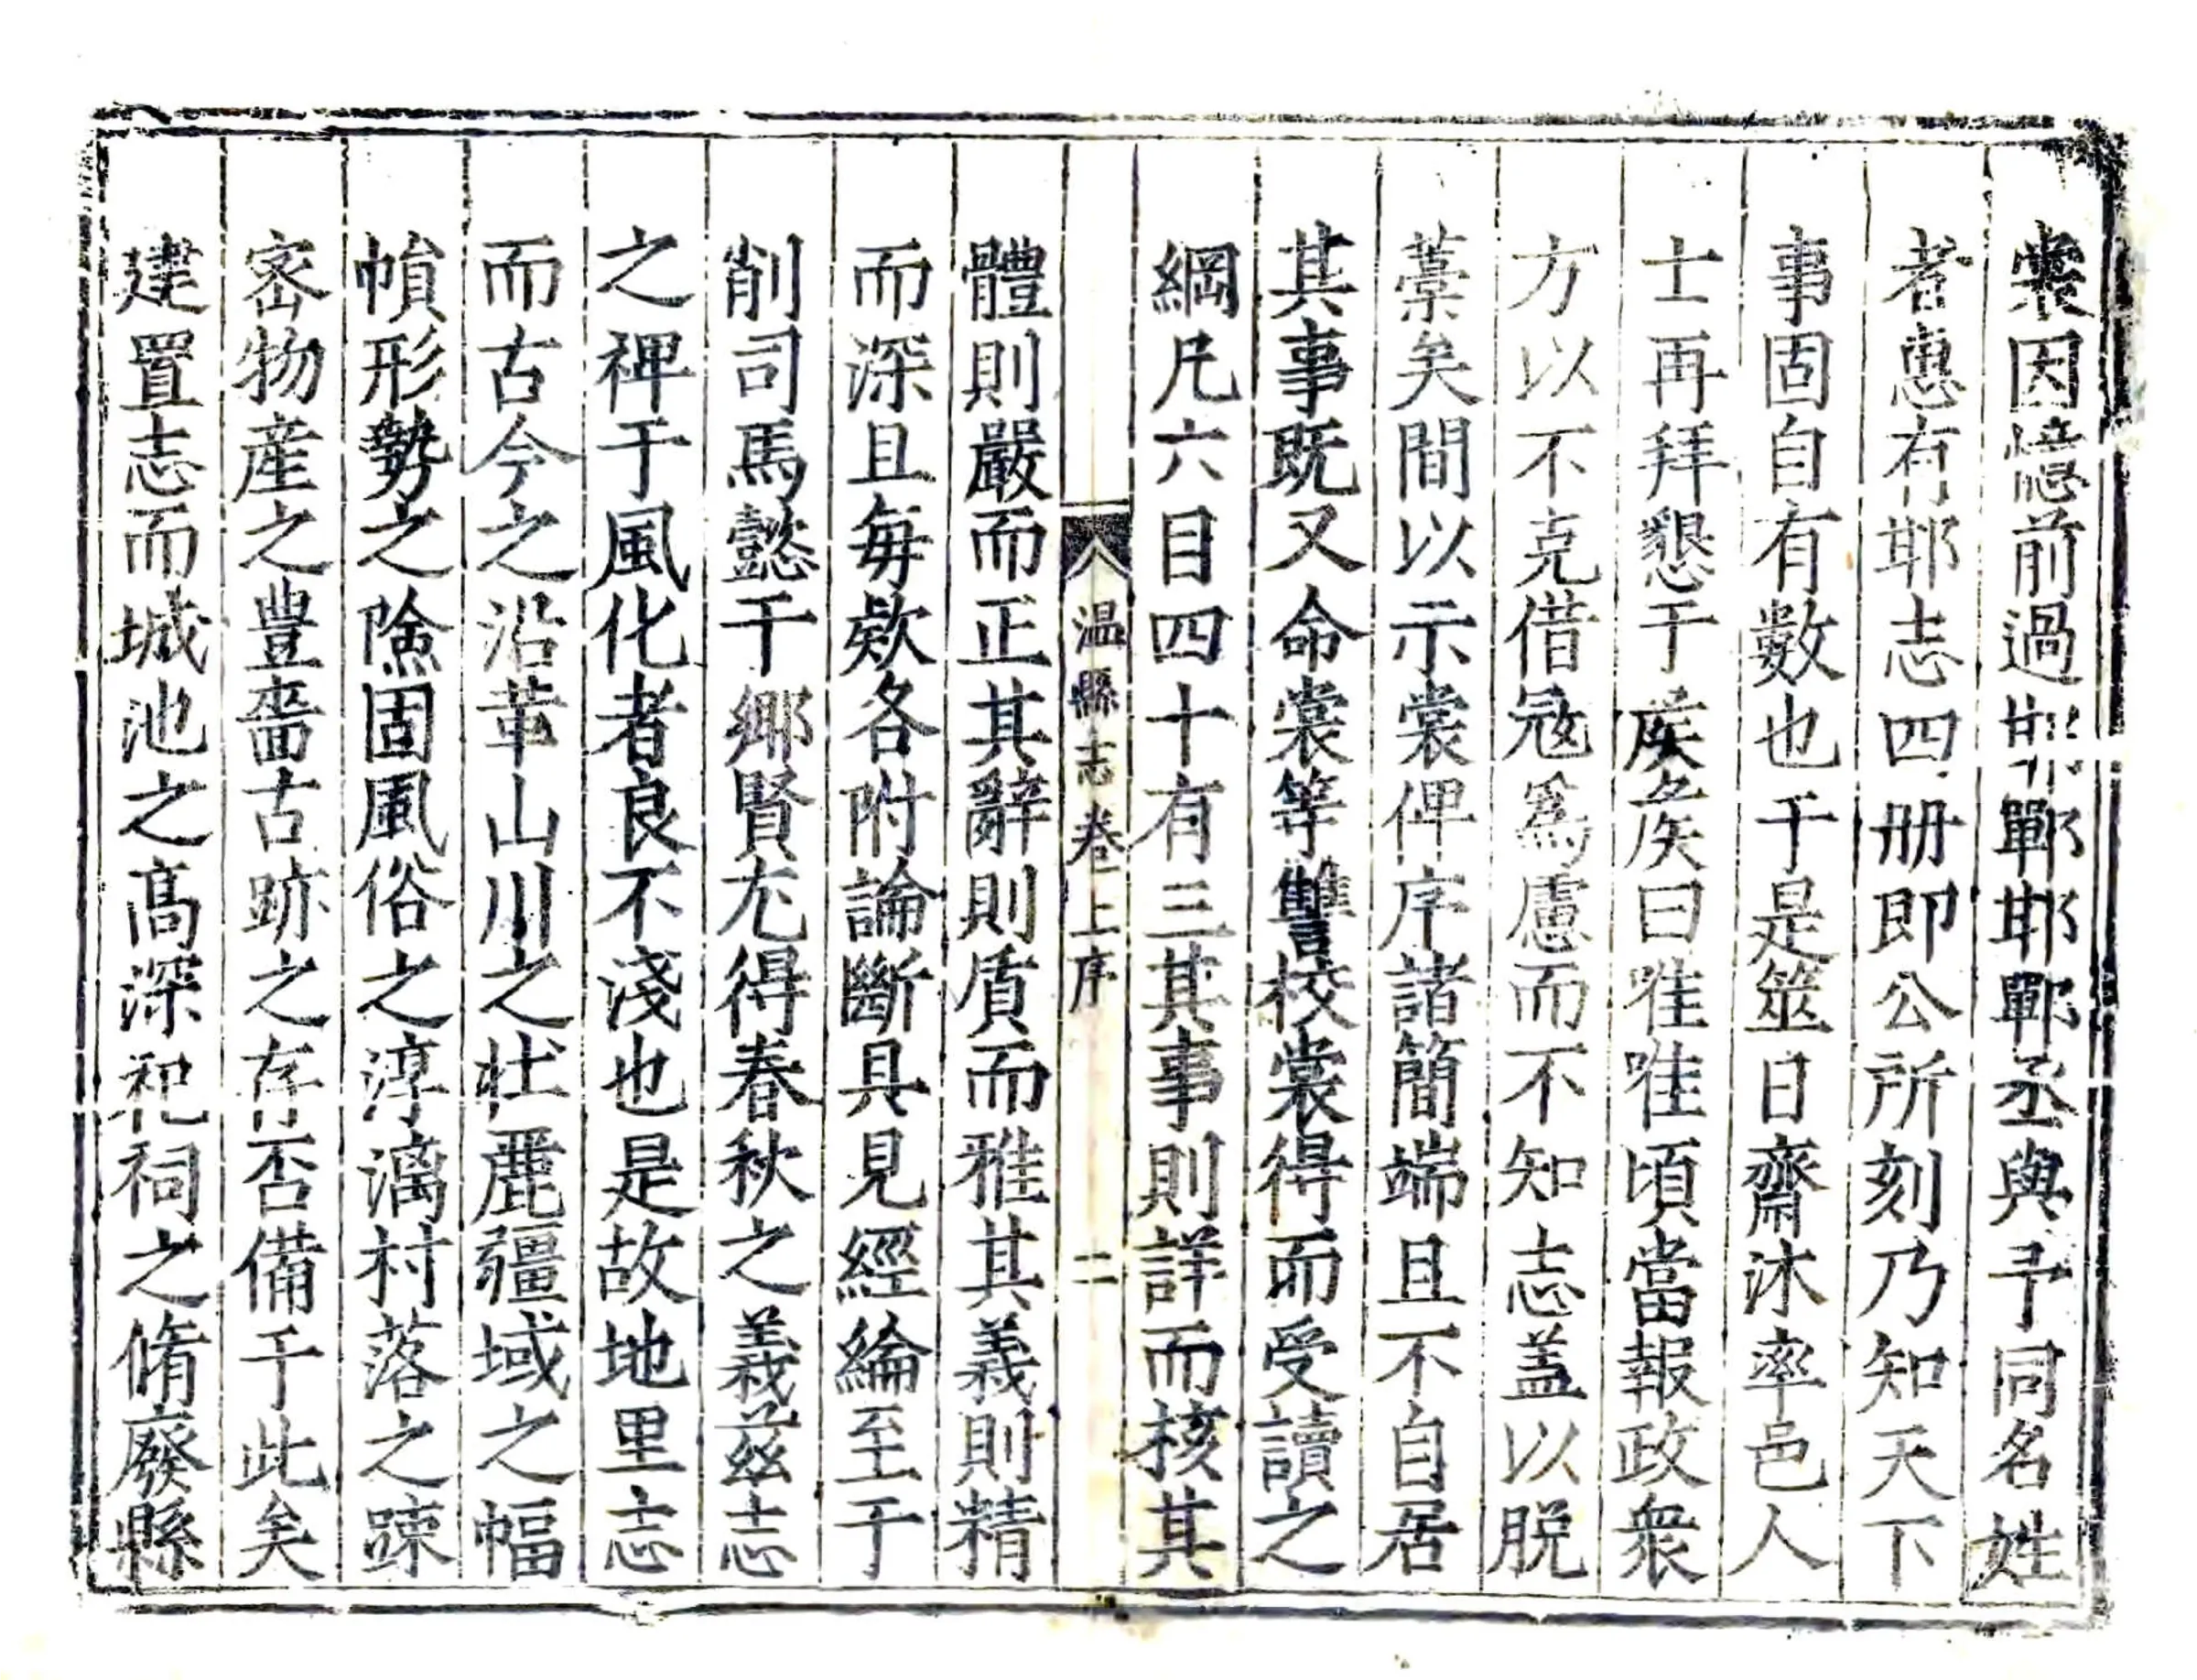 裳因憶前過邯鄲邯鄲丞與予同名姓
者惠有邯志四册即公所刻乃知天下
事固自有數也于是筮日齋沐率邑人
士再拜懇于矦矦曰唯唯頃當報政衆
方以不克借宼爲慮而不知志盖以脱
藁矣間以示裳俾序諸簡端且不自居
其事既又命裳等讐校裳得而受讀之
綱凡六目四十有三其事則詳而核其
温縣志卷上序 二
體則嚴而正其辭則质而雅其義則精
而深且每欵各附論斷具見經綸至于
削司馬懿于郷賢尤得春秋之義兹志
之裨于風化者良不淺也是故地里志
而古今之沿革山川之壮麗疆域之幅
㡓形勢之險固風俗之淳漓村落之踈
宻物産之豊嗇古跡之存否備于此矣
建置志而城池之髙深祀祠之脩廢縣